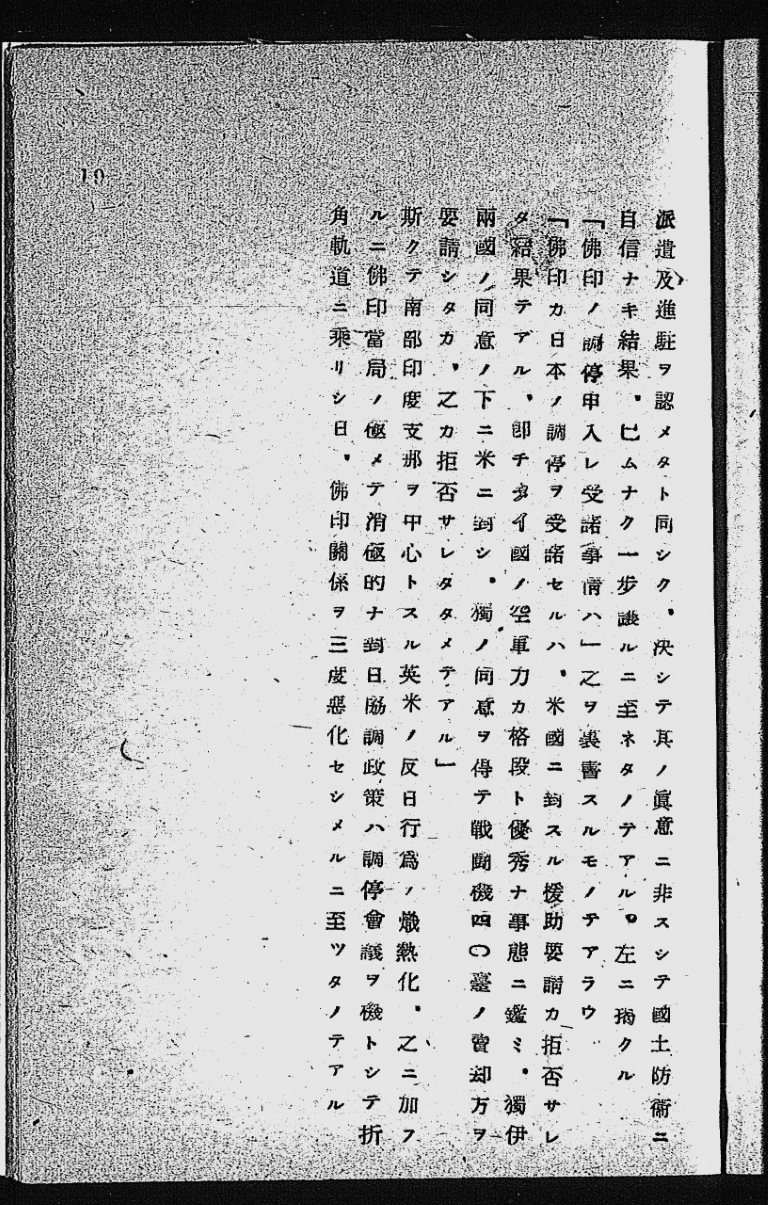 派遣及進駐ヲ認メタト同シク、決シテ其ノ眞意ニ非スシテ國土防衞ニ
自信ナキ結果、已ムナク一步讓ルニ至ネタノテアル。左ニ揭クル
「佛印ノ調停申入レ受諾事情ハ」之ヲ裏書スルモノテアラウ
「佛印カ日本ノ調停ヲ受諾セルハ、米國ニ對スル援助要請カ拒否サレ
タ結果テアル、卽チタイ國ノ空軍力カ格段ト優秀ナ事態ニ鑑ミ、獨伊
兩國ノ同意ノ下ニ米ニ對シ、獨ノ同意ヲ得テ戰鬪機四〇臺ノ賣却方ヲ
要請シタカ、之カ拒否サレタタメテアル」
斯クテ南部印度支那ヲ中心トスル英米ノ反日行爲ノ熾熱化、之ニ加フ
ルニ佛印當局ノ極メテ消極的ナ對日協調政策ハ調停會議ヲ機トシテ折
角軌道ニ乘リシ日、佛印關係ヲ三度惡化セシメルニ至ツタノテアル
10